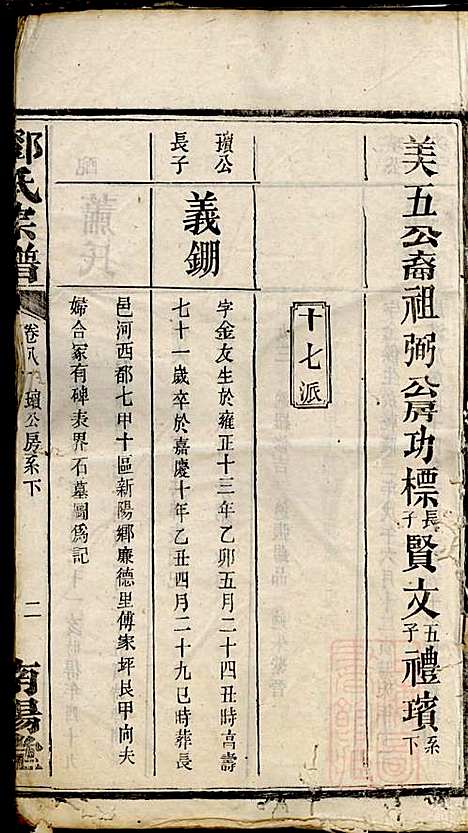 美五公裔祖弼公房功標長子賢文五子禮璸系下
十七派
璸公長子
義鋤
字金友生於雍正十三年乙卯五月二十四丑時高壽
七十一歲卒於嘉慶十年乙丑四月二十九巳時葬長
邑河西都七甲十區新陽鄉廉德里傅家坪艮甲向夫
婦合冢有碑表界石墓圖為記
鄧氏宗譜
卷八
璸公房系下
二
南陽堂